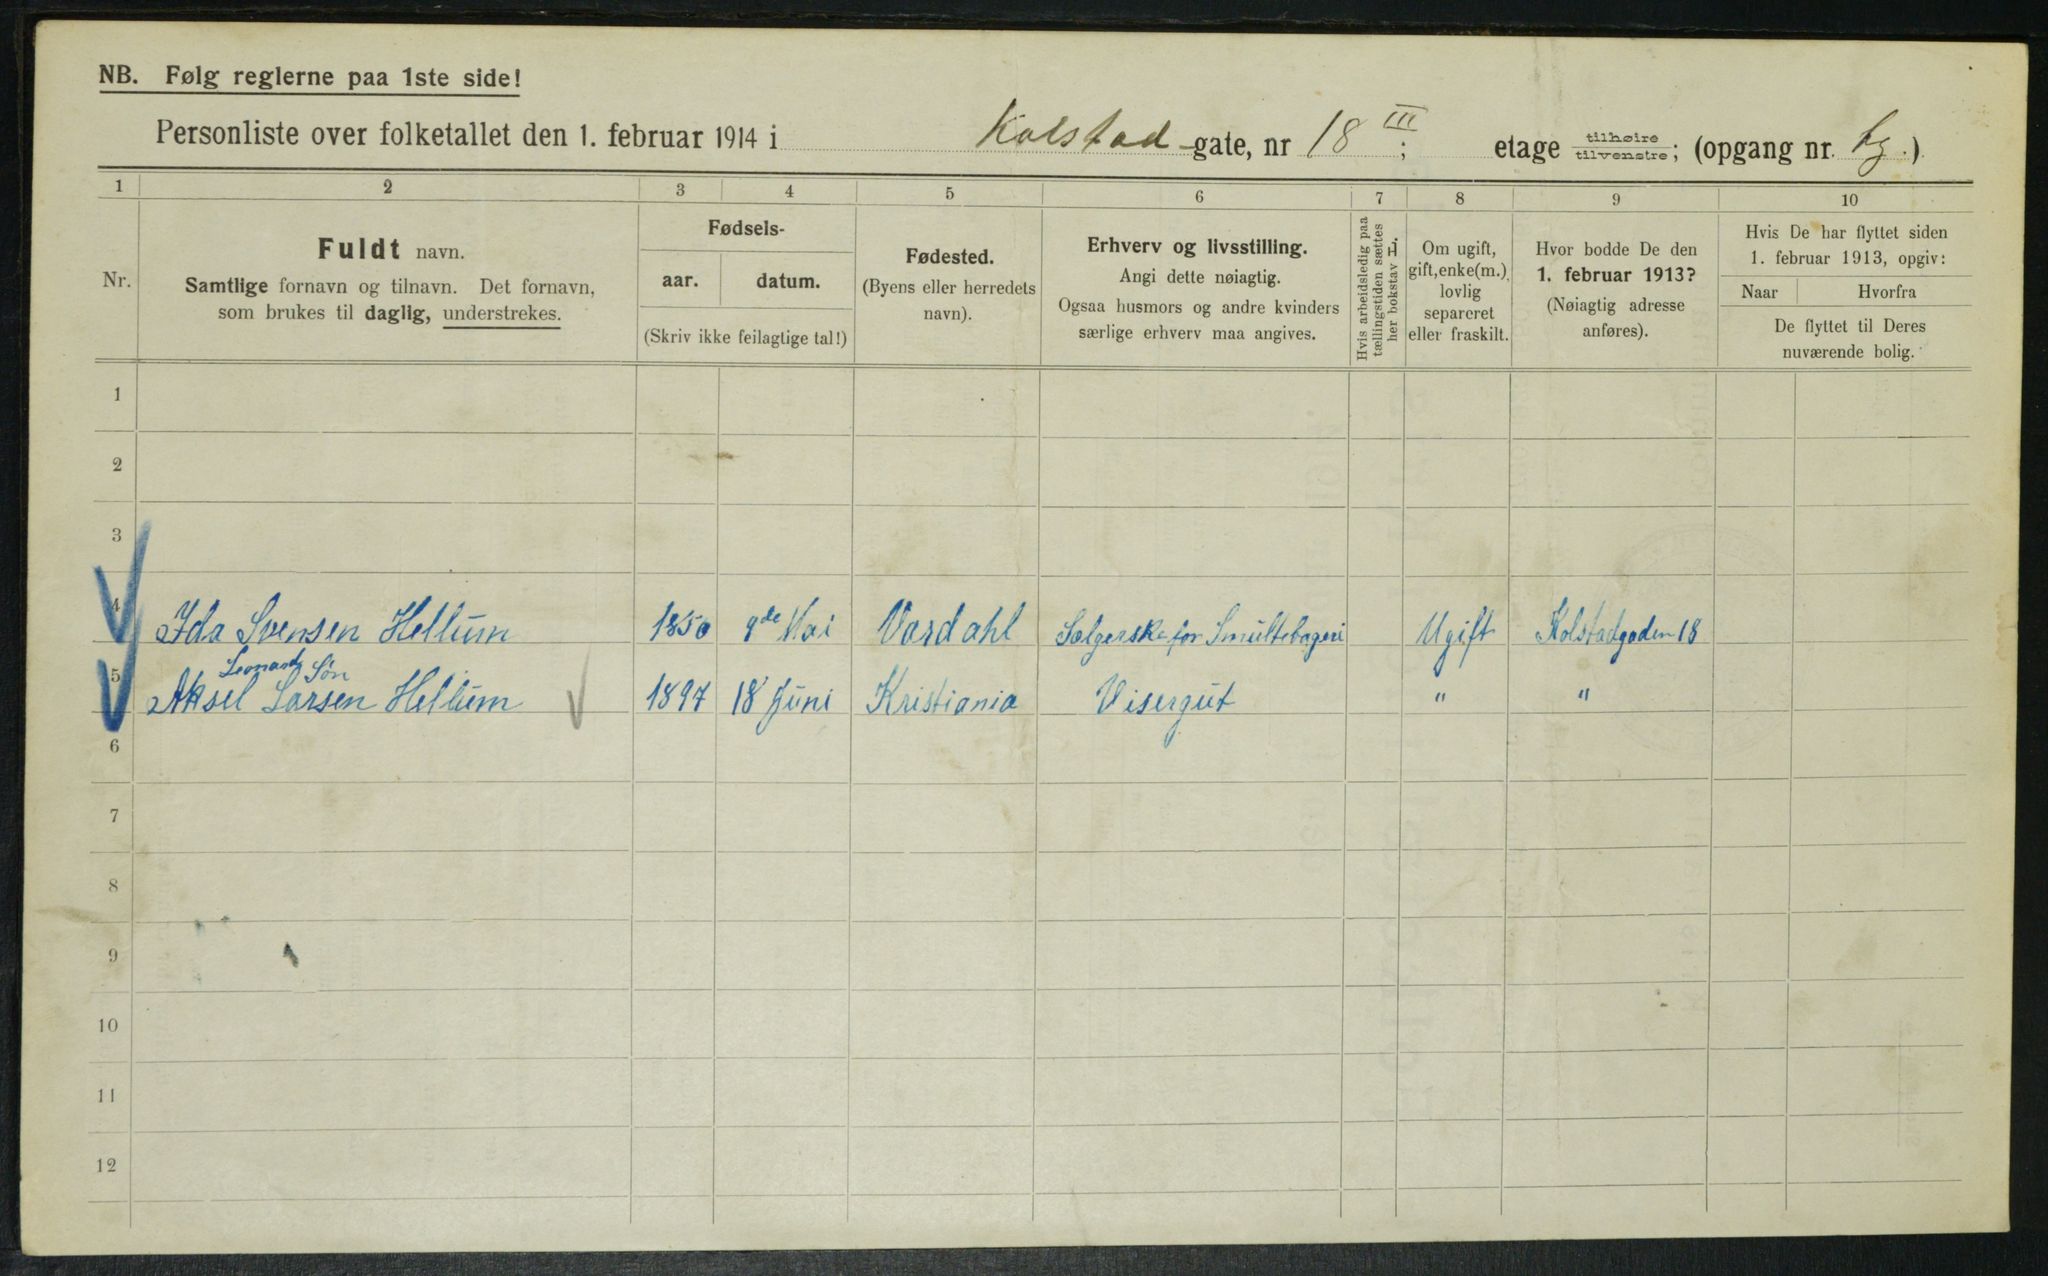 NB. Følg reglerne paa 1ste side!
Personliste over folketallet den 1. februar 1914 i Kolstad-gate, nr 18 III; etage tilhøire/tilvenstre; (opgang nr. )
1 2 3 4 5 6 7 8 9 10
Nr.
Fuldt navn.
Samtlige fornavn og tilnavn. Det fornavn,
som brukes til daglig, understrekes.
Fødsels-
aar. datum.
(Skriv ikke feilagtige tal!)
Fødested.
(Byens eller herredets
navn).
Erhverv og livsstilling.
Angi dette nøiagtig.
Ogsaa husmors og andre kvinders
særlige erhverv maa angives.
Hvis arbeidsledig paa
tællingstiden sættes
her bokstav H.
Om ugift,
gift, enke(m.),
lovlig
separeret
eller fraskilt.
Hvor bodde De den
1. februar 1913?
(Nøiagtig adresse
anføres).
Hvis De har flyttet siden
1. februar 1913, opgiv:
Naar Hvorfra
De flyttet til Deres
nuværende bolig.
1
2
3
4 Ida Svensen Hellum 1850 9de Mai Vardahl Sælgerske for Smultebageri Ugift Kolstadgaden 18
Leonard Søn
5 Aksel Larsen Hellum 1897 18 Juni Kristiania Visergut " "
6
7
8
9
10
11
12